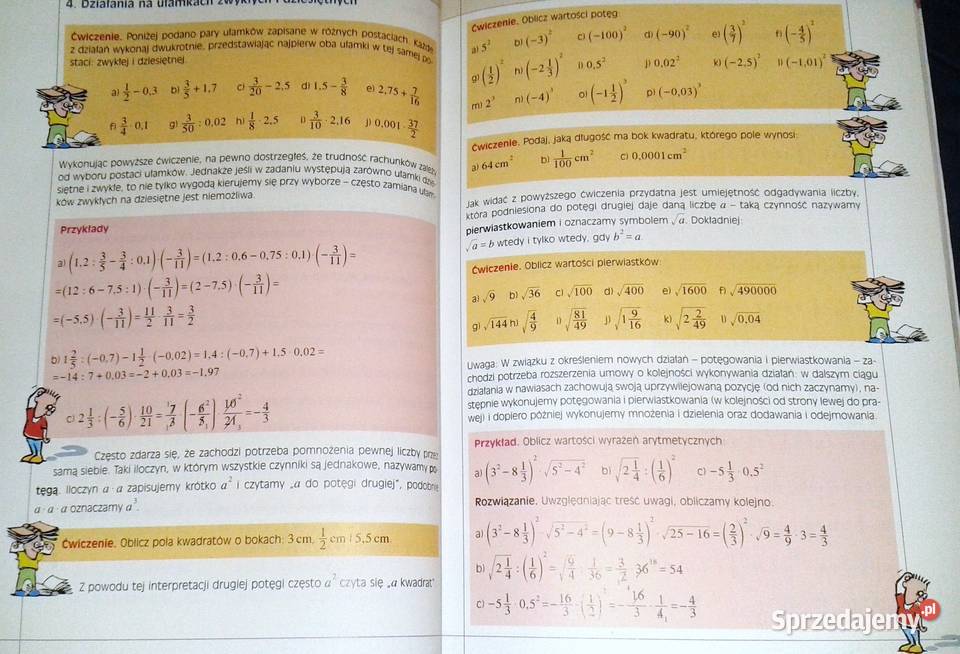 4. Działania na ułamkach zwykłych i dziesiętnych
Ćwiczenie. Poniżej podano pary ułamków zapisane w różnych postaciach. Każde
z działań wykonaj dwukrotnie, przedstawiając najpierw oba ułamki w tej samej po-
staci: zwykłej i dziesiętnej.
a) 1/2 − 0,3 b) 3/5 + 1,7 c) 3/20 − 2,5 d) 1,5 − 3/8 e) 2,75 + 7/16
f) 3/4 · 0,1 g) 3/50 : 0,02 h) 1/8 · 2,5 i) 3/10 · 2,16 j) 0,001 · 37/2
Wykonując powyższe ćwiczenie, na pewno dostrzegłeś, że trudność rachunków zależy
od wyboru postaci ułamków. Jednakże jeśli w zadaniu występują zarówno ułamki dzie-
siętne i zwykłe, to nie tylko wygodą kierujemy się przy wyborze – często zamiana ułam-
ków zwykłych na dziesiętne jest niemożliwa.
Przykłady
a) (1,2 : 3/5 − 3/4 : 0,1) · (−3/11) = (1,2 : 0,6 − 0,75 : 0,1) · (−3/11) =
= (12 : 6 − 7,5 : 1) · (−3/11) = (2 − 7,5) · (−3/11) =
= (−5,5) · (−3/11) = 11/2 · 3/11 = 3/2
b) 1 2/5 : (−0,7) − 1 1/2 · (−0,02) = 1,4 : (−0,7) + 1,5 · 0,02 =
= −14 : 7 + 0,03 = −2 + 0,03 = −1,97
c) 2 1/3 : (−5/6) · 10/21 = 7/3 · (−6/5) · 10/21 = −4/3
Często zdarza się, że zachodzi potrzeba pomnożenia pewnej liczby przez
samą siebie. Taki iloczyn, w którym wszystkie czynniki są jednakowe, nazywamy po-
tęgą. Iloczyn a · a zapisujemy krótko a² i czytamy „a do potęgi drugiej”, podobnie
a · a · a oznaczamy a³.
Ćwiczenie. Oblicz pola kwadratów o bokach: 3 cm, 1/2 cm i 5,5 cm.
Z powodu tej interpretacji drugiej potęgi często a² czyta się „a kwadrat”
Ćwiczenie. Oblicz wartości potęg:
a) 5² b) (−3)² c) (−100)² d) (−90)² e) (3/7)² f) (−4/5)²
g) (1/2)² h) (−2 1/3)² i) 0,5² j) 0,02² k) (−2,5)² l) (−1,01)²
m) 2³ n) (−4)³ o) (−1 1/2)³ p) (−0,03)³
Ćwiczenie. Podaj, jaką długość ma bok kwadratu, którego pole wynosi:
a) 64 cm² b) 1/100 cm² c) 0,0001 cm²
Jak widać z powyższego ćwiczenia przydatna jest umiejętność odgadywania liczby,
która podniesiona do potęgi drugiej daje daną liczbę a – taką czynność nazywamy
pierwiastkowaniem i oznaczamy symbolem √a. Dokładniej:
√a = b wtedy i tylko wtedy, gdy b² = a.
Ćwiczenie. Oblicz wartości pierwiastków:
a) √9 b) √36 c) √100 d) √400 e) √1600 f) √490000
g) √144 h) √(4/9) i) √(81/49) j) √(1 9/16) k) √(2 2/49) l) √0,04
Uwaga: W związku z określeniem nowych działań – potęgowania i pierwiastkowania – za-
chodzi potrzeba rozszerzenia umowy o kolejności wykonywania działań: w dalszym ciągu
działania w nawiasach zachowują swoją uprzywilejowaną pozycję (od nich zaczynamy), na-
stępnie wykonujemy potęgowania i pierwiastkowania (w kolejności od strony lewej do pra-
wej) i dopiero później wykonujemy mnożenia i dzielenia oraz dodawania i odejmowania.
Przykład. Oblicz wartości wyrażeń arytmetycznych:
a) (3² − 8 1/3)² · √(5² − 4²) b) √(2 1/4) : (1/6)² c) −5 1/3 · 0,5²
Rozwiązanie. Uwzględniając treść uwagi, obliczamy kolejno:
a) (3² − 8 1/3)² · √(5² − 4²) = (9 − 8 1/3)² · √(25 − 16) = (2/3)² · √9 = 4/9 · 3 = 4/3
b) √(2 1/4) : (1/6)² = √(9/4) : 1/36 = 3/2 · 36 = 54
c) −5 1/3 · 0,5² = −16/3 · (1/2)² = −16/3 · 1/4 = −4/3
Sprzedajemy.pl